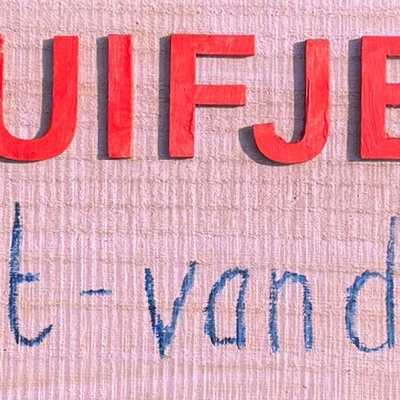 UIFJE
t-vand